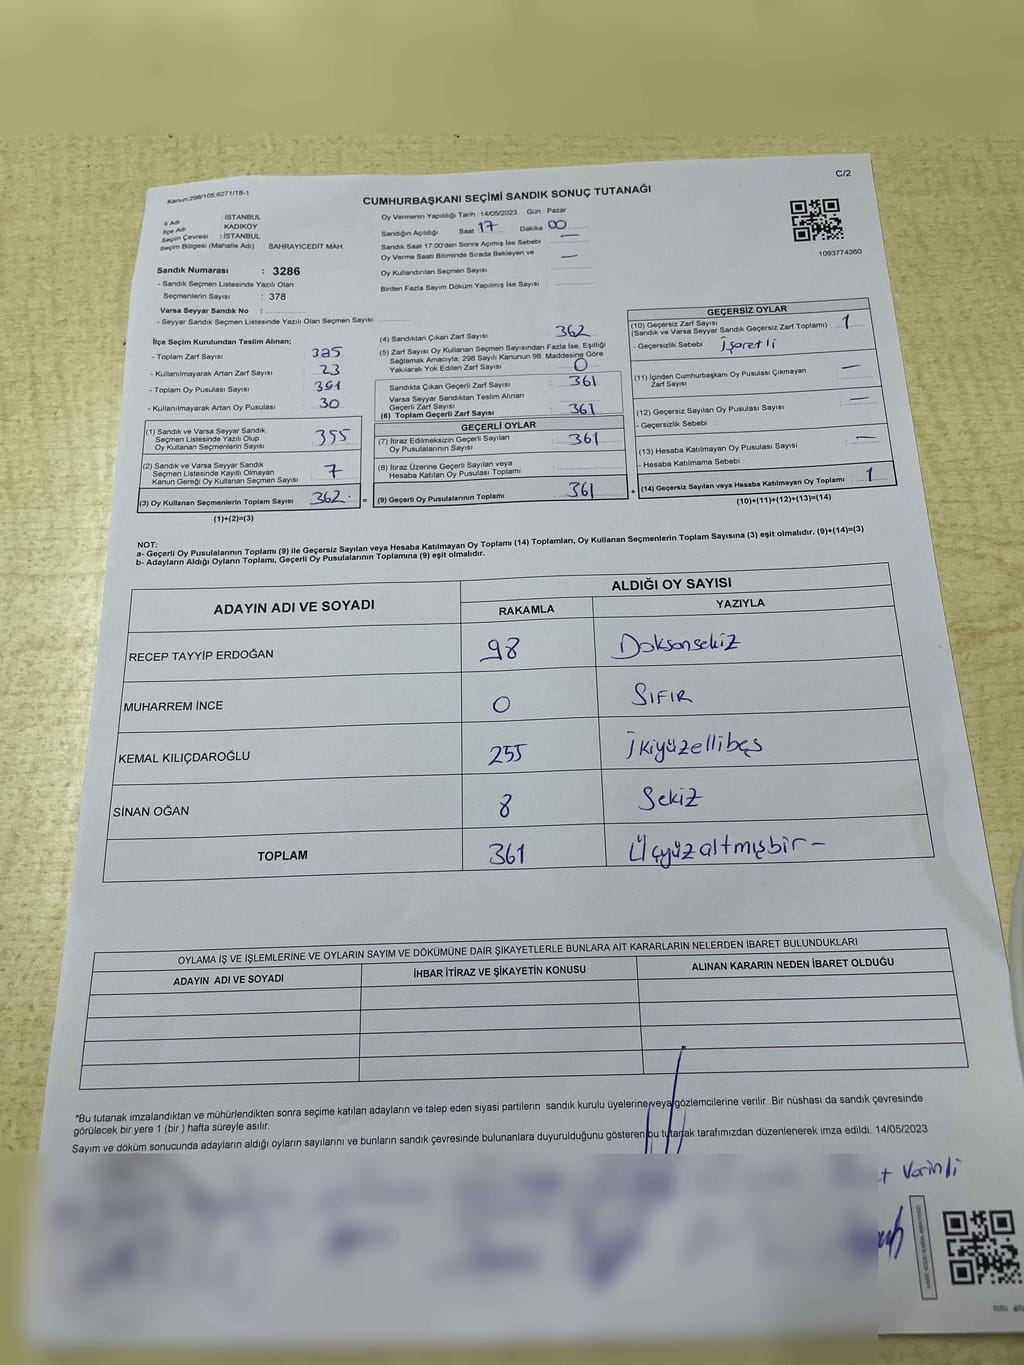 Kanun:298/105,6271/18-1
C/2
CUMHURBAŞKANI SEÇİMİ SANDIK SONUÇ TUTANAĞI
İl Adı : İSTANBUL
İlçe Adı KADIKÖY
Seçim Çevresi : İSTANBUL
Seçim Bölgesi (Mahalle Adı) : SAHRAYICEDİT MAH.
Sandık Numarası : 3286
- Sandık Seçmen Listesinde Yazılı Olan
Seçmenlerin Sayısı : 378
Varsa Seyyar Sandık No :
- Seyyar Sandık Seçmen Listesinde Yazılı Olan Seçmen Sayısı
Oy Vermenin Yapıldığı Tarih :14/05/2023 Gün : Pazar
Sandığın Açıldığı Saat 17 Dakika 00
Sandık Saat 17.00'den Sonra Açımış İse Sebebi : —
Oy Verme Saati Bitiminde Sırada Bekleyen ve
Oy Kullandırılan Seçmen Sayısı —
Birden Fazla Sayım Döküm Yapılmış İse Sayısı :
1093774360
İlçe Seçim Kurulundan Teslim Alınan;
- Toplam Zarf Sayısı : 385
- Kullanılmayarak Artan Zarf Sayısı : 23
- Toplam Oy Pusulası Sayısı : 391
- Kullanılmayarak Artan Oy Pusulası : 30
(1) Sandık ve Varsa Seyyar Sandık
Seçmen Listesinde Yazılı Olup
Oy Kullanan Seçmenlerin Sayısı 355
(2) Sandık ve Varsa Seyyar Sandık
Seçmen Listesinde Kayıtlı Olmayan
Kanun Gereği Oy Kullanan Seçmen Sayısı 7
(3) Oy Kullanan Seçmenlerin Toplam Sayısı 362 =
(1)+(2)=(3)
(4) Sandıktan Çıkan Zarf Sayısı : 362
(5) Zarf Sayısı Oy Kullanan Seçmen Sayısından Fazla İse, Eşitliği
Sağlamak Amacıyla; 298 Sayılı Kanunun 98. Maddesine Göre
Yakılarak Yok Edilen Zarf Sayısı : 0
Sandıkta Çıkan Geçerli Zarf Sayısı : 361
Varsa Seyyar Sandıktan Teslim Alınan
Geçerli Zarf Sayısı
(6) Toplam Geçerli Zarf Sayısı : 361
GEÇERLİ OYLAR
(7) İtiraz Edilmeksizin Geçerli Sayılan
Oy Pusulalarının Sayısı : 361
(8) İtiraz Üzerine Geçerli Sayılan veya
Hesaba Katılan Oy Pusulası Toplamı
(9) Geçerli Oy Pusulalarının Toplamı : 361 +
GEÇERSİZ OYLAR
(10) Geçersiz Zarf Sayısı
(Sandık ve Varsa Seyyar Sandık Geçersiz Zarf Toplamı) : 1
- Geçersizlik Sebebi : İşaretli
(11) İçinden Cumhurbaşkanı Oy Pusulası Çıkmayan
Zarf Sayısı : —
(12) Geçersiz Sayılan Oy Pusulası Sayısı : —
- Geçersizlik Sebebi :
(13) Hesaba Katılmayan Oy Pusulası Sayısı : —
- Hesaba Katılmama Sebebi :
(14) Geçersiz Sayılan veya Hesaba Katılmayan Oy Toplamı : 1
(10)+(11)+(12)+(13)=(14)
NOT:
a- Geçerli Oy Pusulalarının Toplamı (9) ile Geçersiz Sayılan veya Hesaba Katılmayan Oy Toplamı (14) Toplamları, Oy Kullanan Seçmenlerin Toplam Sayısına (3) eşit olmalıdır. (9)+(14)=(3)
b- Adayların Aldığı Oyların Toplamı, Geçerli Oy Pusulalarının Toplamına (9) eşit olmalıdır.
ADAYIN ADI VE SOYADI ALDIĞI OY SAYISI
RAKAMLA YAZIYLA
RECEP TAYYİP ERDOĞAN 98 Doksansekiz
MUHARREM İNCE 0 SIFIR
KEMAL KILIÇDAROĞLU 255 İkiyüzellibeş
SİNAN OĞAN 8 Sekiz
TOPLAM 361 Üçyüzaltmışbir –
OYLAMA İŞ VE İŞLEMLERİNE VE OYLARIN SAYIM VE DÖKÜMÜNE DAİR ŞİKAYETLERLE BUNLARA AİT KARARLARIN NELERDEN İBARET BULUNDUKLARI
ADAYIN ADI VE SOYADI İHBAR İTİRAZ VE ŞİKAYETİN KONUSU ALINAN KARARIN NEDEN İBARET OLDUĞU
*Bu tutanak imzalandıktan ve mühürlendikten sonra seçime katılan adayların ve talep eden siyasi partilerin sandık kurulu üyelerine veya gözlemcilerine verilir .Bir nüshası da sandık çevresinde
görülecek bir yere 1 (bir ) hafta süreyle asılır.
Sayım ve döküm sonucunda adayların aldığı oyların sayılarını ve bunların sandık çevresinde bulunanlara duyurulduğunu gösteren bu tutanak tarafımızdan düzenlenerek imza edildi. 14/05/2023